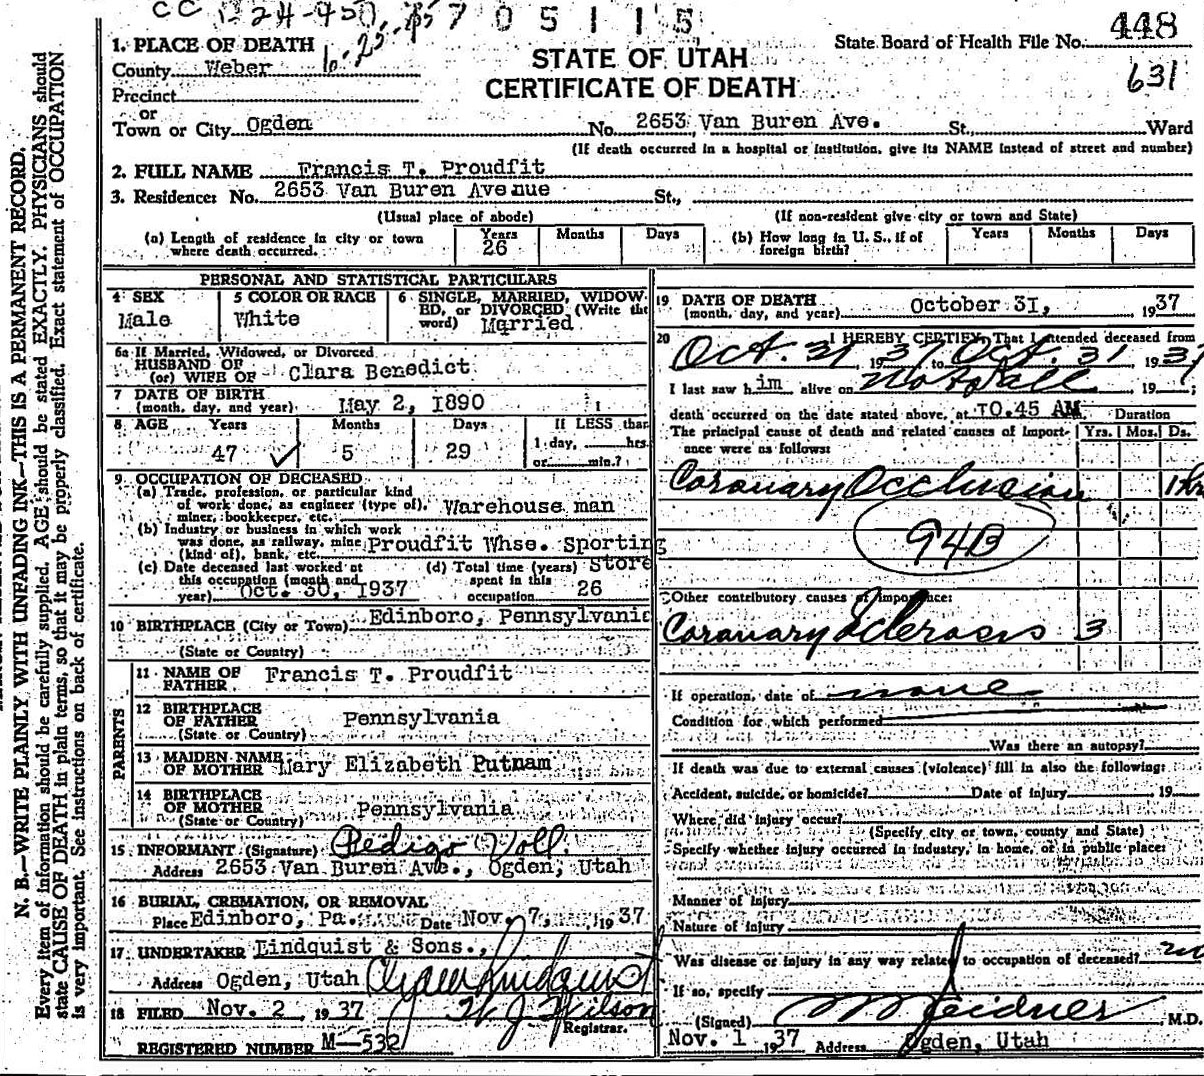 705115
448
631
1. PLACE OF DEATH
County Weber
Precinct
or
Town or City Ogden
STATE OF UTAH
CERTIFICATE OF DEATH
State Board of Health File No.
No. 2653 Van Buren Ave. St., Ward
(If death occurred in a hospital or institution, give its NAME instead of street and number)
2. FULL NAME Francis T. Proudfit
3. Residence: No. 2653 Van Buren Avenue St.,
(Usual place of abode) (If non-resident give city or town and State)
(a) Length of residence in city or town where death occurred. Years 26 Months Days
(b) How long in U. S., if of foreign birth? Years Months Days
PERSONAL AND STATISTICAL PARTICULARS
4 SEX Male
5 COLOR OR RACE White
6 SINGLE, MARRIED, WIDOWED, or DIVORCED (Write the word) Married
6a If Married, Widowed, or Divorced
HUSBAND OF
(or) WIFE OF Clara Benedict
7 DATE OF BIRTH
(month, day, and year) May 2, 1890
8 AGE Years 47 Months 5 Days 29
If LESS than
1 day, hrs.
or min.?
9 OCCUPATION OF DECEASED
(a) Trade, profession, or particular kind
of work done, as engineer (type of),
miner, bookkeeper, etc. Warehouse man
(b) Industry or business in which work
was done, as railway, mine
(kind of), bank, etc. Proudfit Whse. Sporting Store
(c) Date deceased last worked at
this occupation (month and
year) Oct. 30, 1937
(d) Total time (years)
spent in this
occupation 26
10 BIRTHPLACE (City or Town) Edinboro, Pennsylvania
(State or Country)
PARENTS
11 NAME OF
FATHER Francis T. Proudfit
12 BIRTHPLACE
OF FATHER Pennsylvania
(State or Country)
13 MAIDEN NAME
OF MOTHER Mary Elizabeth Putnam
14 BIRTHPLACE
OF MOTHER Pennsylvania
(State or Country)
15 INFORMANT (Signature) Pedigo Voll
Address 2653 Van Buren Ave., Ogden, Utah
16 BURIAL, CREMATION, OR REMOVAL
Place Edinboro, Pa. Date Nov. 7, 1937
17 UNDERTAKER Lindquist & Sons.,
Address Ogden, Utah
18 FILED Nov. 2 1937 W J Wilson
Registrar.
REGISTERED NUMBER M-532
19 DATE OF DEATH
(month, day, and year) October 31, 1937
20 I HEREBY CERTIFY, That I attended deceased from
Oct. 31 1937 Oct. 31 1937
I last saw him alive on not at all 19
death occurred on the date stated above, at 10.45 AM
The principal cause of death and related causes of importance were as follows:
Duration
Yrs. Mos. Ds.
Coronary Occlusion 1 hr
94B
Other contributory causes of importance:
Coronary Sclerosis 3
If operation, date of none
Condition for which performed
Was there an autopsy?
If death was due to external causes (violence) fill in also the following:
Accident, suicide, or homicide? Date of injury 19
Where did injury occur?
(Specify city or town, county and State)
Specify whether injury occurred in industry, in home, or in public place:
Manner of injury
Nature of injury
Was disease or injury in any way related to occupation of deceased? no
If so, specify
(Signed) M.D.
Nov. 1 1937 Address Ogden, Utah
N. B.—WRITE PLAINLY WITH UNFADING INK—THIS IS A PERMANENT RECORD.
Every item of information should be carefully supplied. AGE should be stated EXACTLY. PHYSICIANS should
state CAUSE OF DEATH in plain terms, so that it may be properly classified. Exact statement of OCCUPATION
is very important. See instructions on back of certificate.